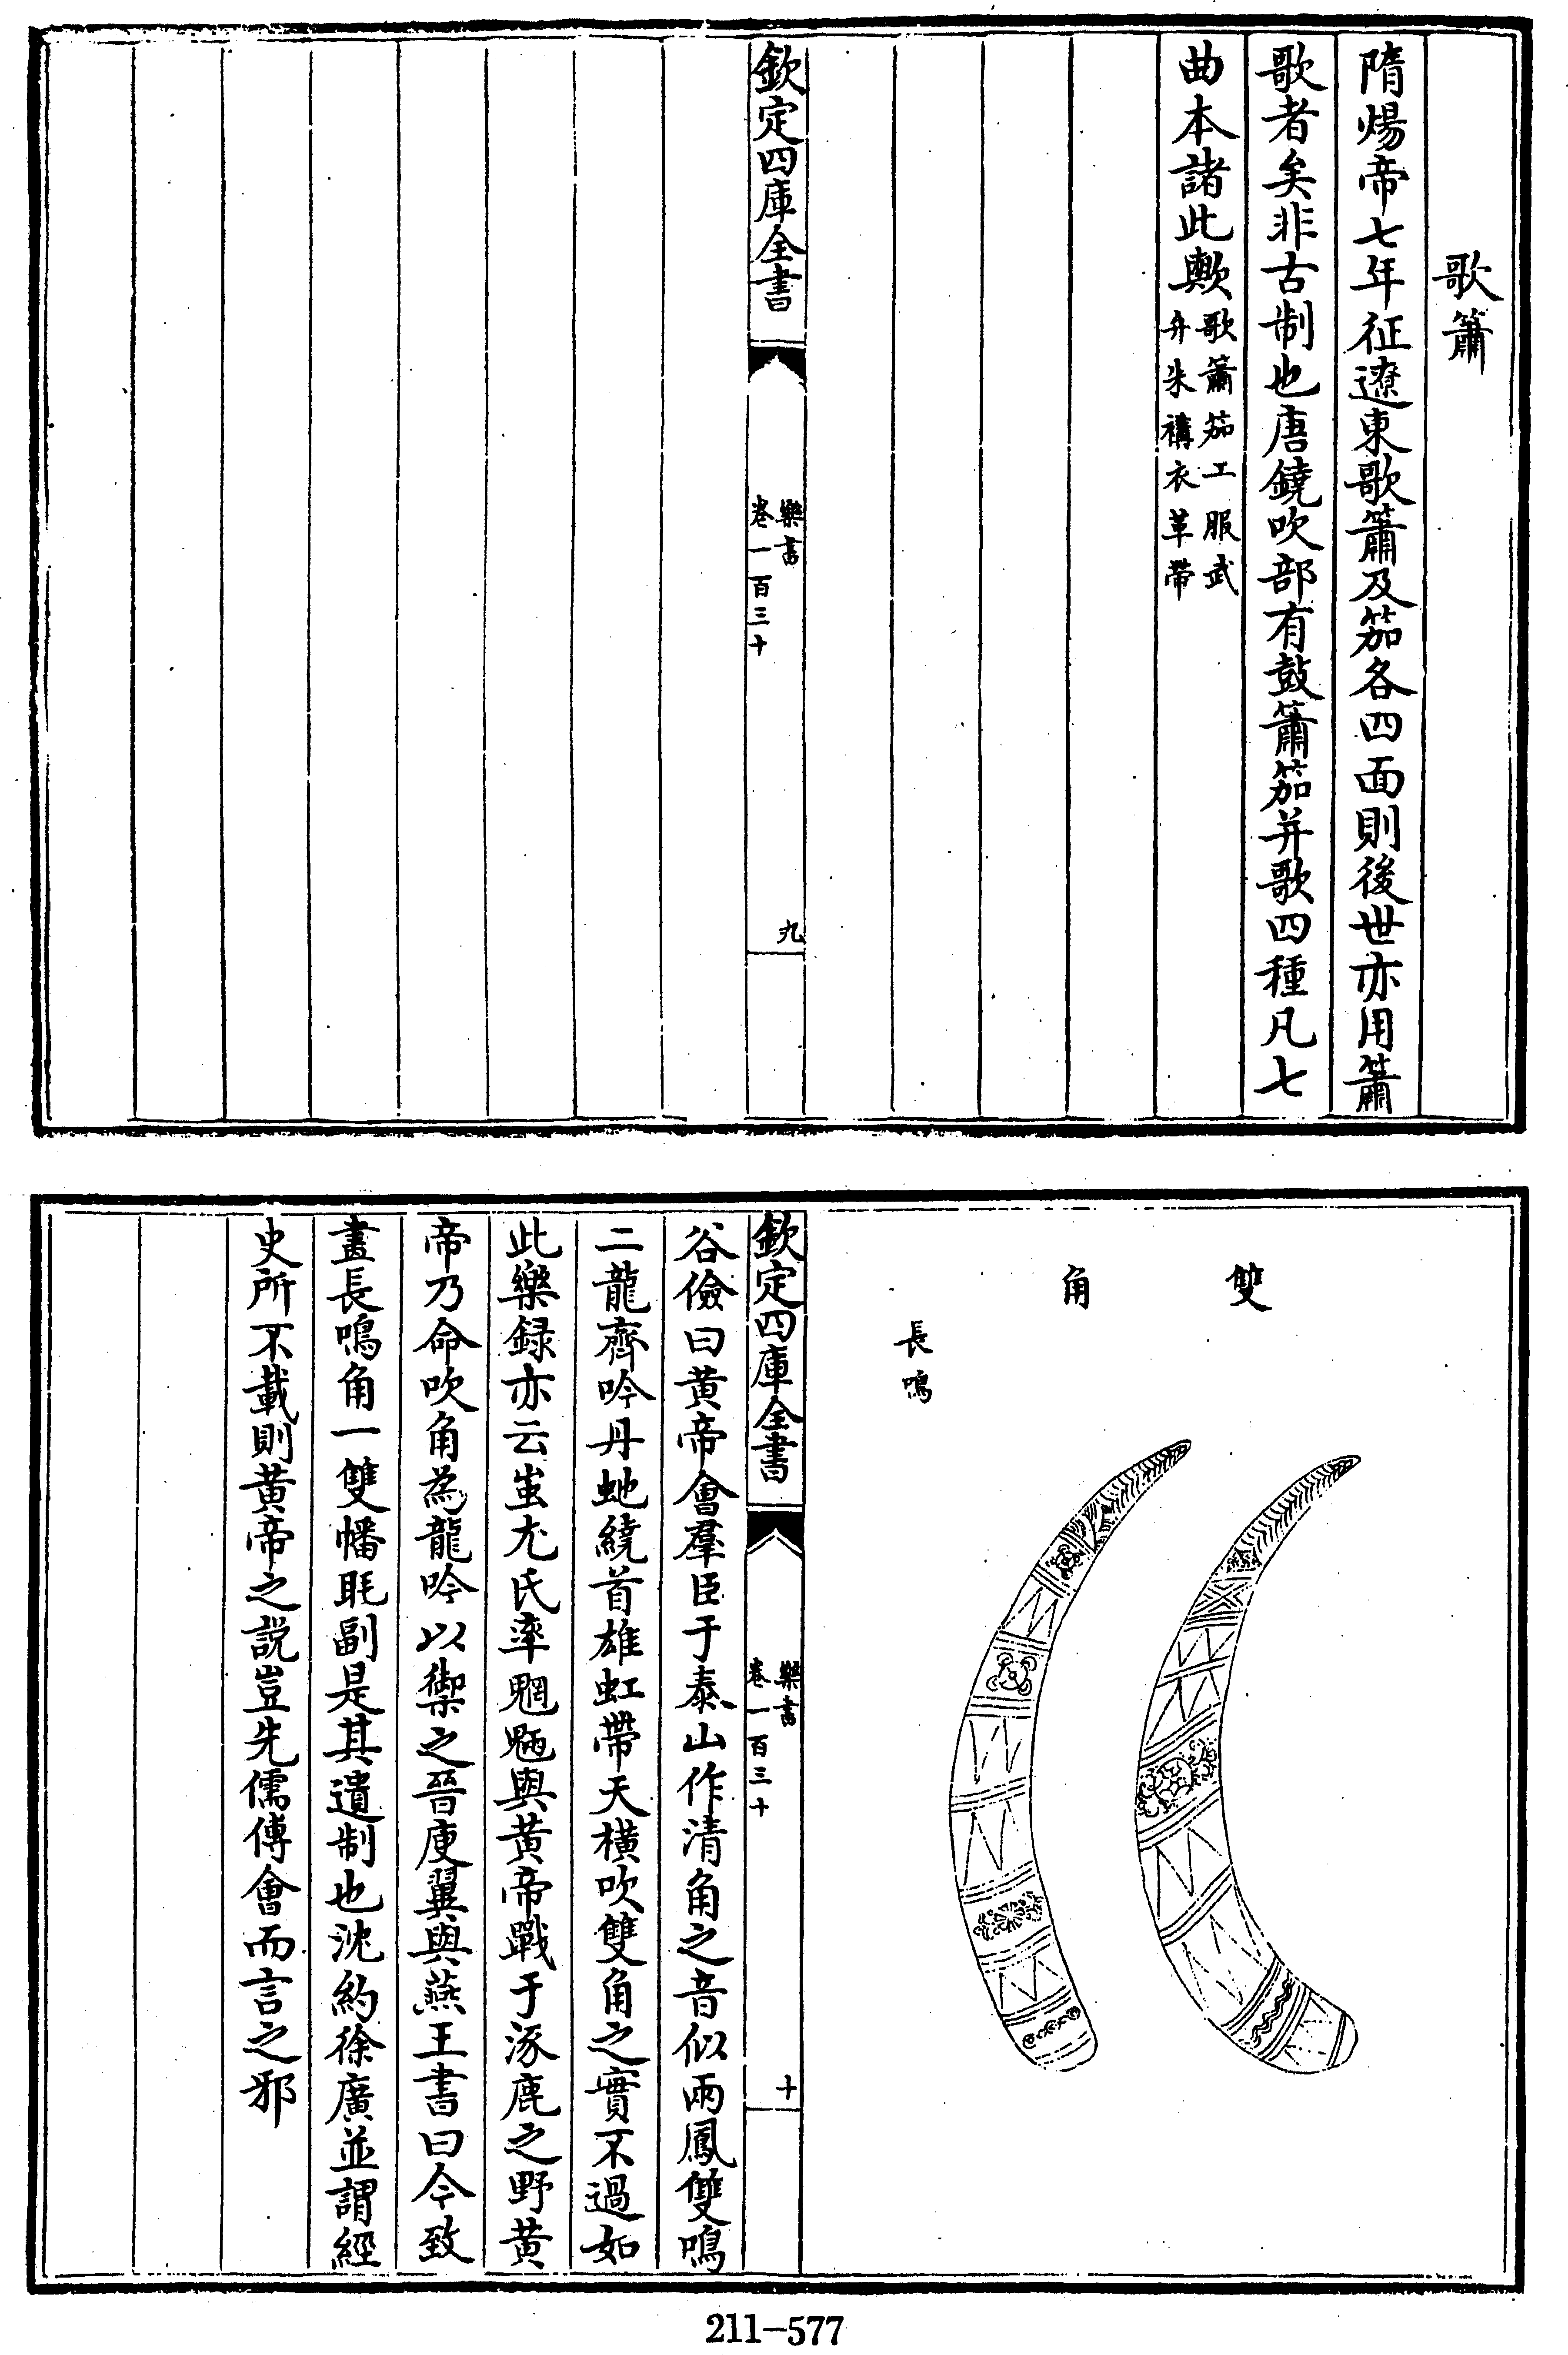 歌簫
隋煬帝七年征遼東歌簫及笳各四面則後世亦用簫
歌者矣非古制也唐鐃吹部有鼓簫笳并歌四種凡七
曲本諸此歟歌簫笳工服武
弁朱褠衣革帶
欽定四庫全書
樂書
卷一百三十
九
雙角
長鳴
欽定四庫全書
樂書
卷一百三十
十
谷儉曰黄帝會羣臣于泰山作清角之音似兩鳳雙鳴
二龍齊吟丹虵繞首雄虹帶天横吹雙角之實不過如
此樂録亦云蚩尤氏率魍魎與黄帝戰于涿鹿之野黄
帝乃命吹角為龍吟以禦之晉庾翼與燕王書曰今致
畫長鳴角一雙幡毦副是其遺制也沈約徐廣並謂經
史所不載則黄帝之説豈先儒傅會而言之邪
211-577